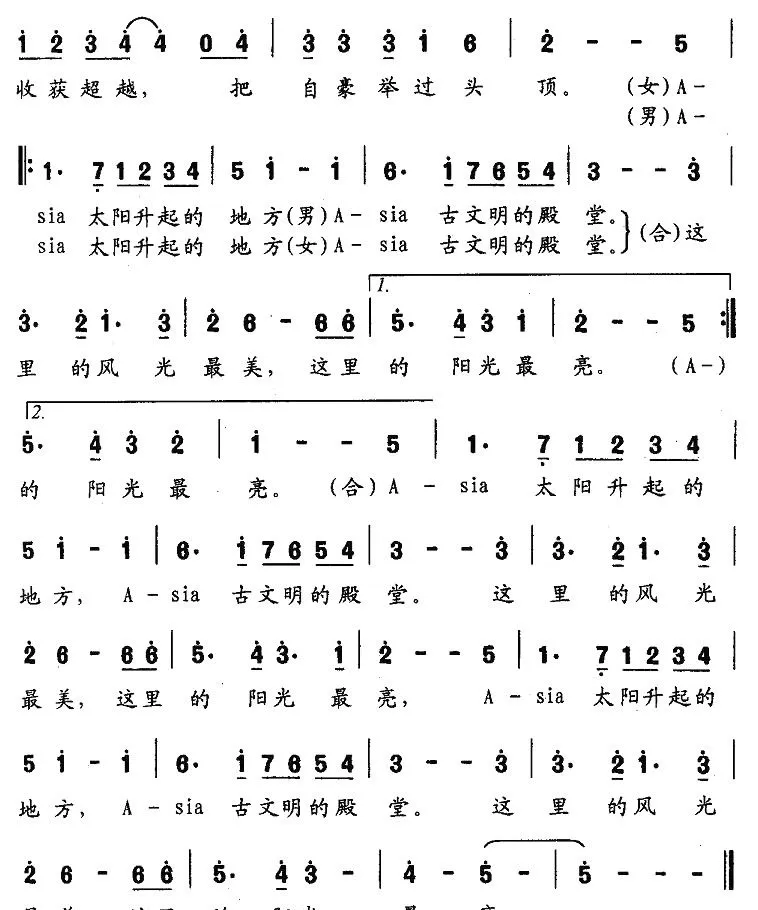 1 2 3 4 4 0 4 | 3 3 3 1 6 | 2 - - 5 |
收获超越, 把 自豪举过头 顶。 (女)A-
(男)A-
‖: 1· 7 1 2 3 4 | 5 1 - 1 | 6· 1 7 6 5 4 | 3 - - 3 |
sia 太阳升起的 地方(男)A- sia 古文明的殿 堂。
sia 太阳升起的 地方(女)A- sia 古文明的殿 堂。 (合)这
1.
3· 2 1· 3 | 2 6 - 6 6 | 5· 4 3 1 | 2 - - 5 :‖
里 的风 光 最美, 这里 的 阳光最 亮。 (A-)
2.
5· 4 3 2 | 1 - - 5 | 1· 7 1 2 3 4 |
的 阳光最 亮。 (合)A - sia 太阳升起的
5 1 - 1 | 6· 1 7 6 5 4 | 3 - - 3 | 3· 2 1· 3 |
地方, A - sia 古文明的殿 堂。 这 里 的风 光
2 6 - 6 6 | 5· 4 3· 1 | 2 - - 5 | 1· 7 1 2 3 4 |
最美, 这里 的 阳光 最 亮, A - sia 太阳升起的
5 1 - 1 | 6· 1 7 6 5 4 | 3 - - 3 | 3· 2 1· 3 |
地方, A - sia 古文明的殿 堂。 这 里 的风 光
2 6 - 6 6 | 5· 4 3 - | 4 - 5 - | 5 - - - ‖